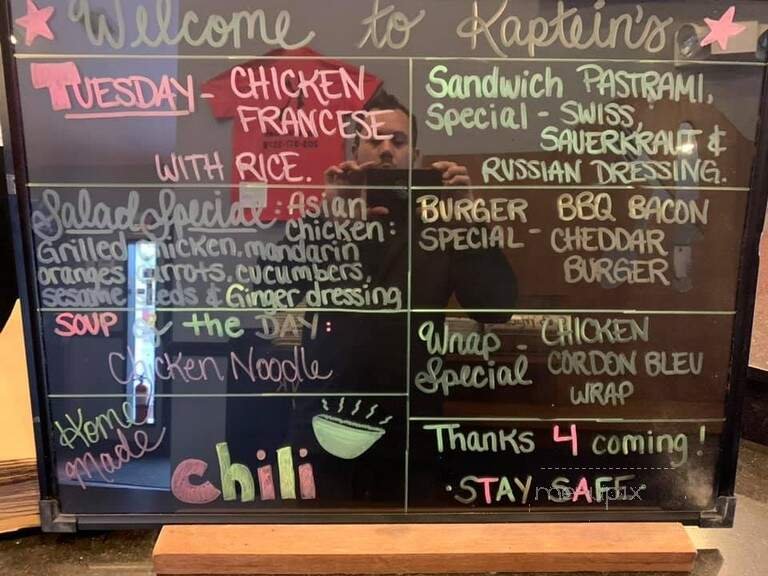 Welcome to Kaptein's
TUESDAY - CHICKEN
FRANCESE
WITH RICE.
Salad Special: Asian
chicken:
Grilled chicken, mandarin
oranges, carrots, cucumbers,
sesame seeds & Ginger dressing
SOUP of the DAY:
Chicken Noodle
Home
Made
Chili
Sandwich PASTRAMI,
Special - SWISS,
SAUERKRAUT &
RUSSIAN DRESSING.
BURGER BBQ BACON
SPECIAL - CHEDDAR
BURGER
Wrap - CHICKEN
Special CORDON BLEU
WRAP
Thanks 4 coming!
·STAY SAFE·
menupix